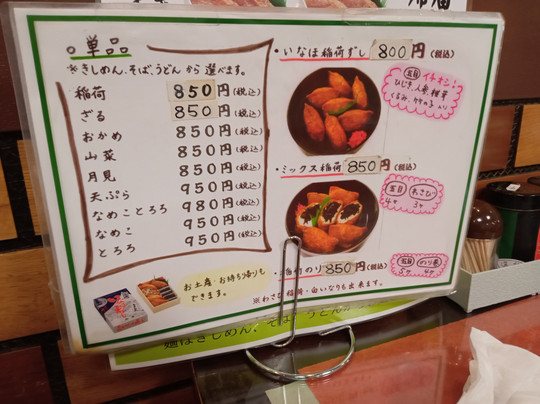 単品
※きしめん、そば、うどんから選べます。
稲荷 850円(税込)
ざる 850円(税込)
おかめ 850円(税込)
山菜 850円(税込)
月見 850円(税込)
天ぷら 950円(税込)
なめことろろ 980円(税込)
なめこ 950円(税込)
とろろ 950円(税込)
お土産・お持ち帰りも
できます。
・いなほ稲荷ずし 800円(税込)
五目 イチオシ!
ひじき、人参、椎茸
くるみ、竹の子入り
・ミックス稲荷 850円(税込)
五目 わさび
4ヶ 3ヶ
のり 850円(税込)
五目 のり巻
5ヶ 4ヶ
※わさび稲荷・白いなりも出来ます。
麺はきしめん、そば、うどんか